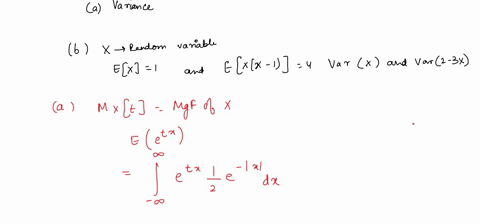 (a) Variance
(b) X → Random variable
E[X] = 1 and E[X[X-1)] = 4 Var(X) and Var(2-3X)
(a) Mx[t] = MgF of X
E(e^{tx})
= ∫_{-∞}^{∞} e^{tx} 1/2 e^{-|x|} dx